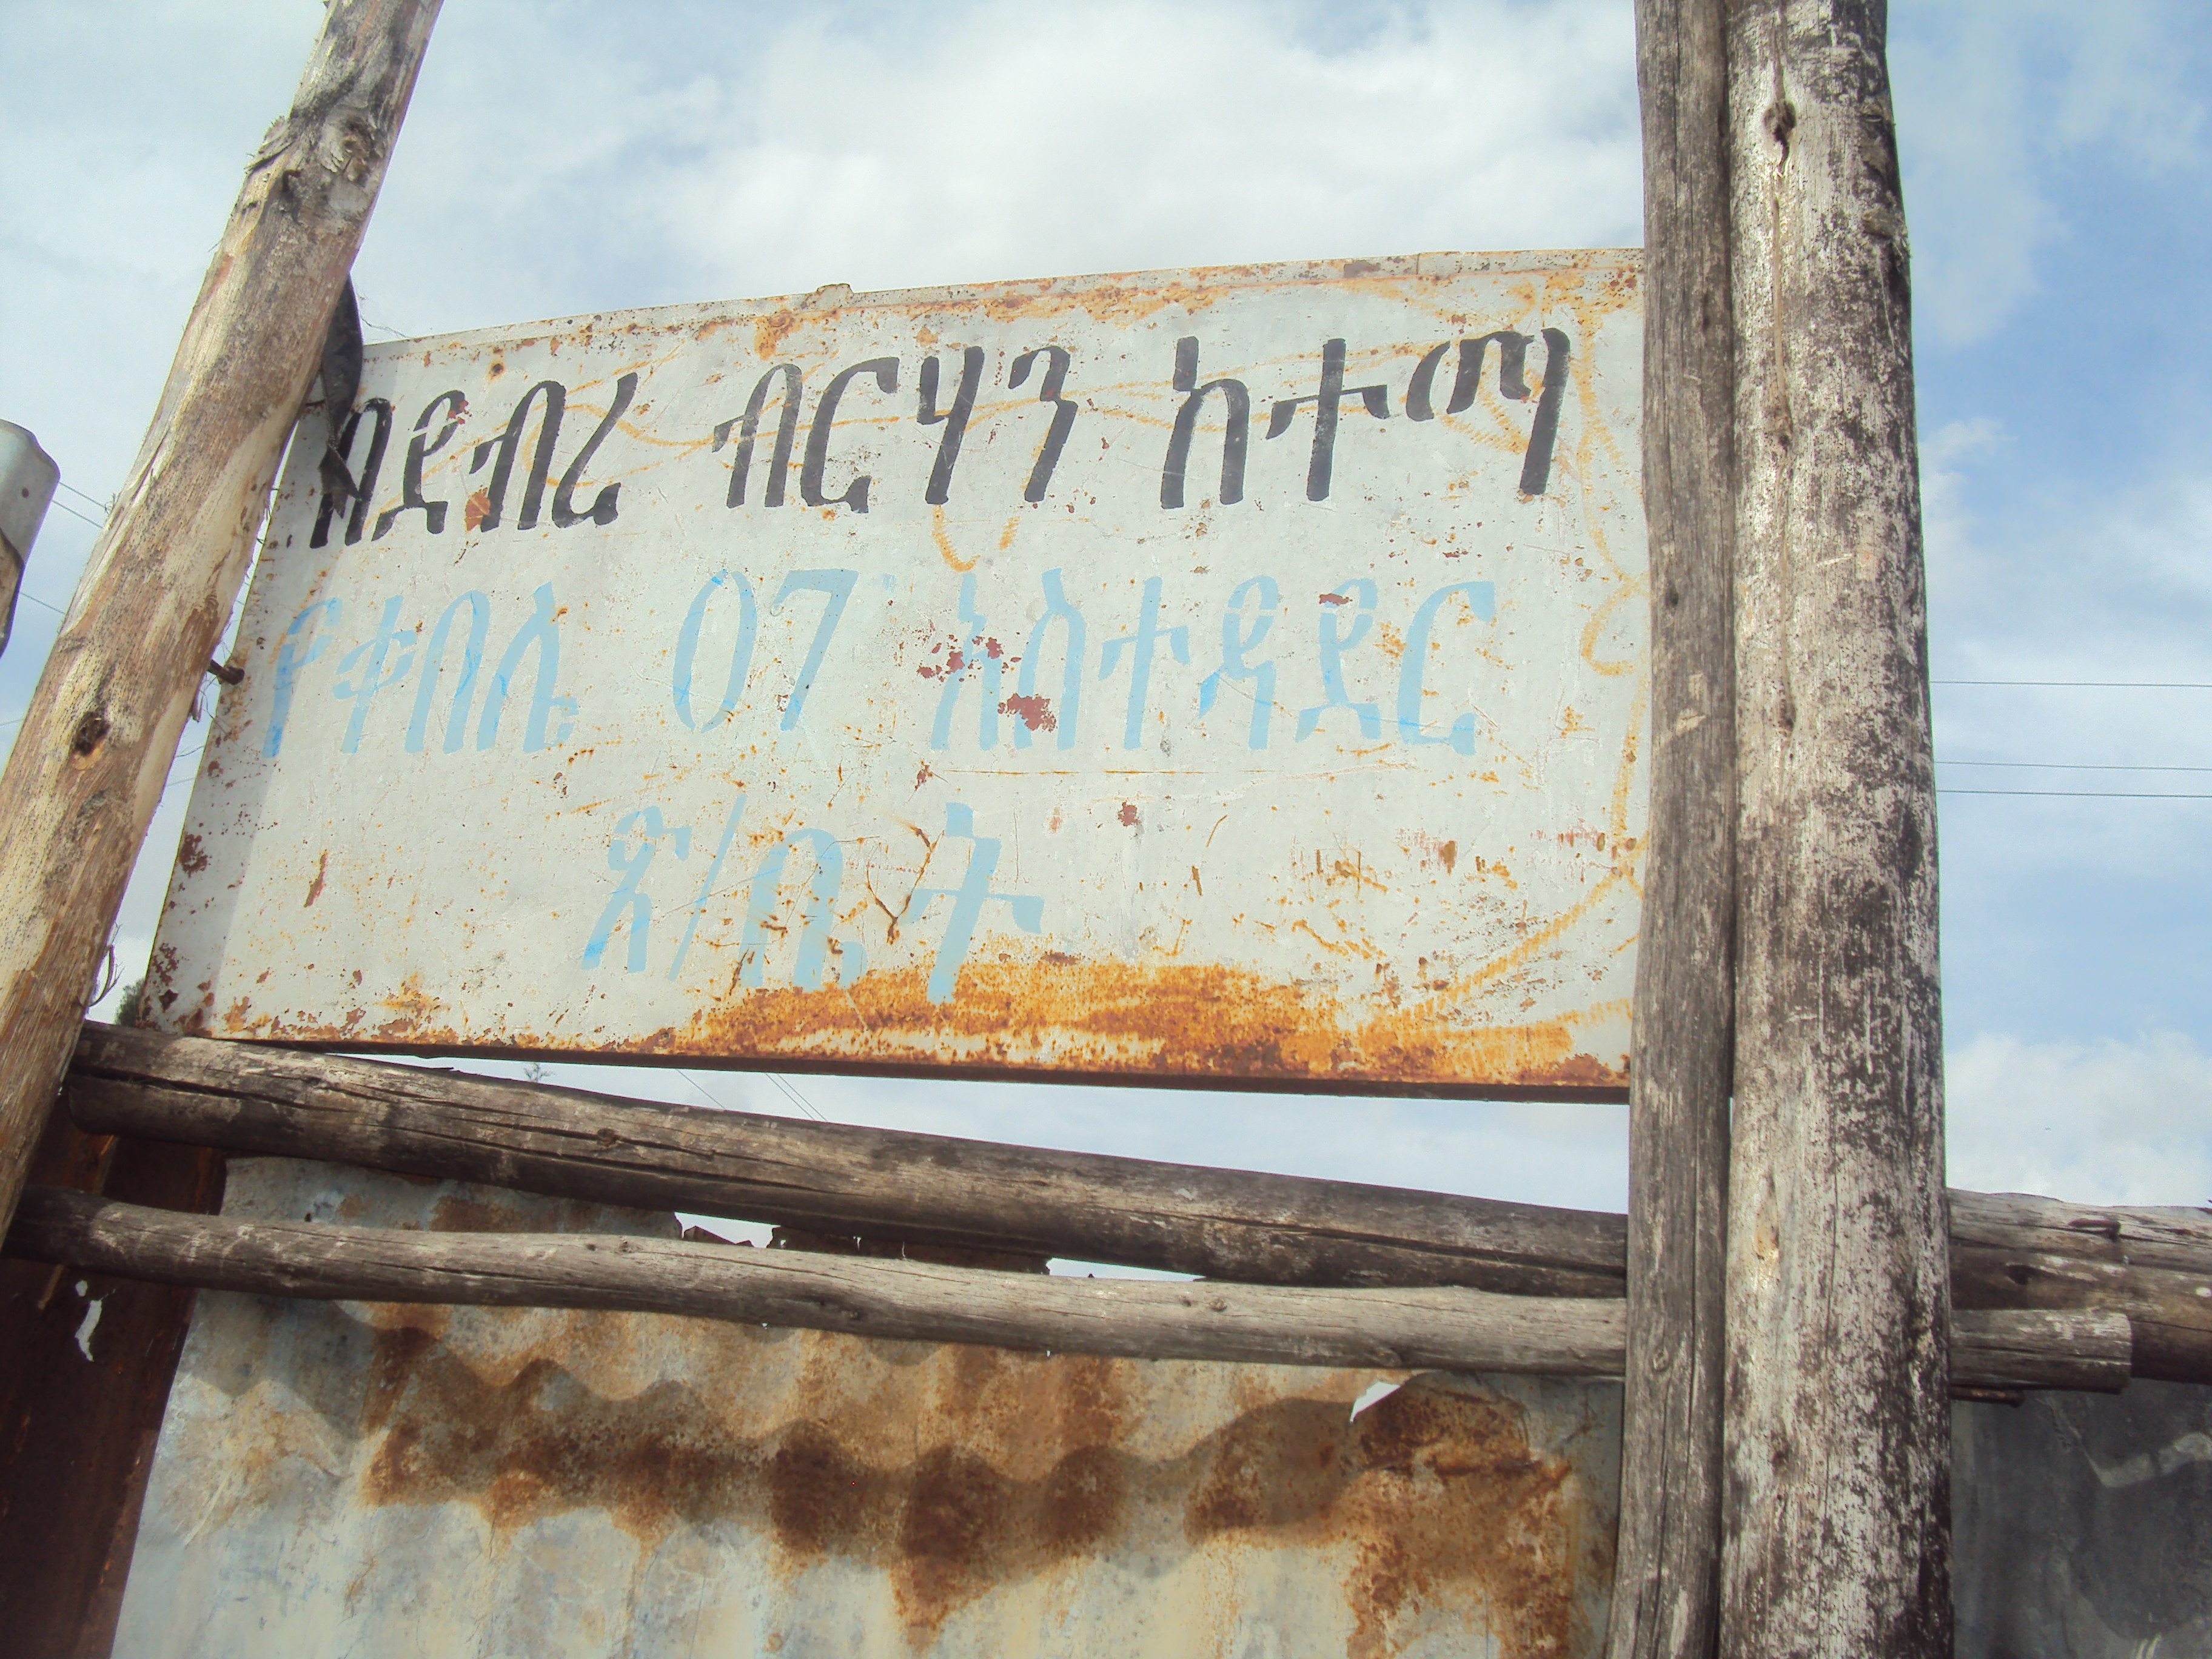 በደብረ ብርሃን ከተማ
የቀበሌ 07 አስተዳደር
ጽ/ቤት